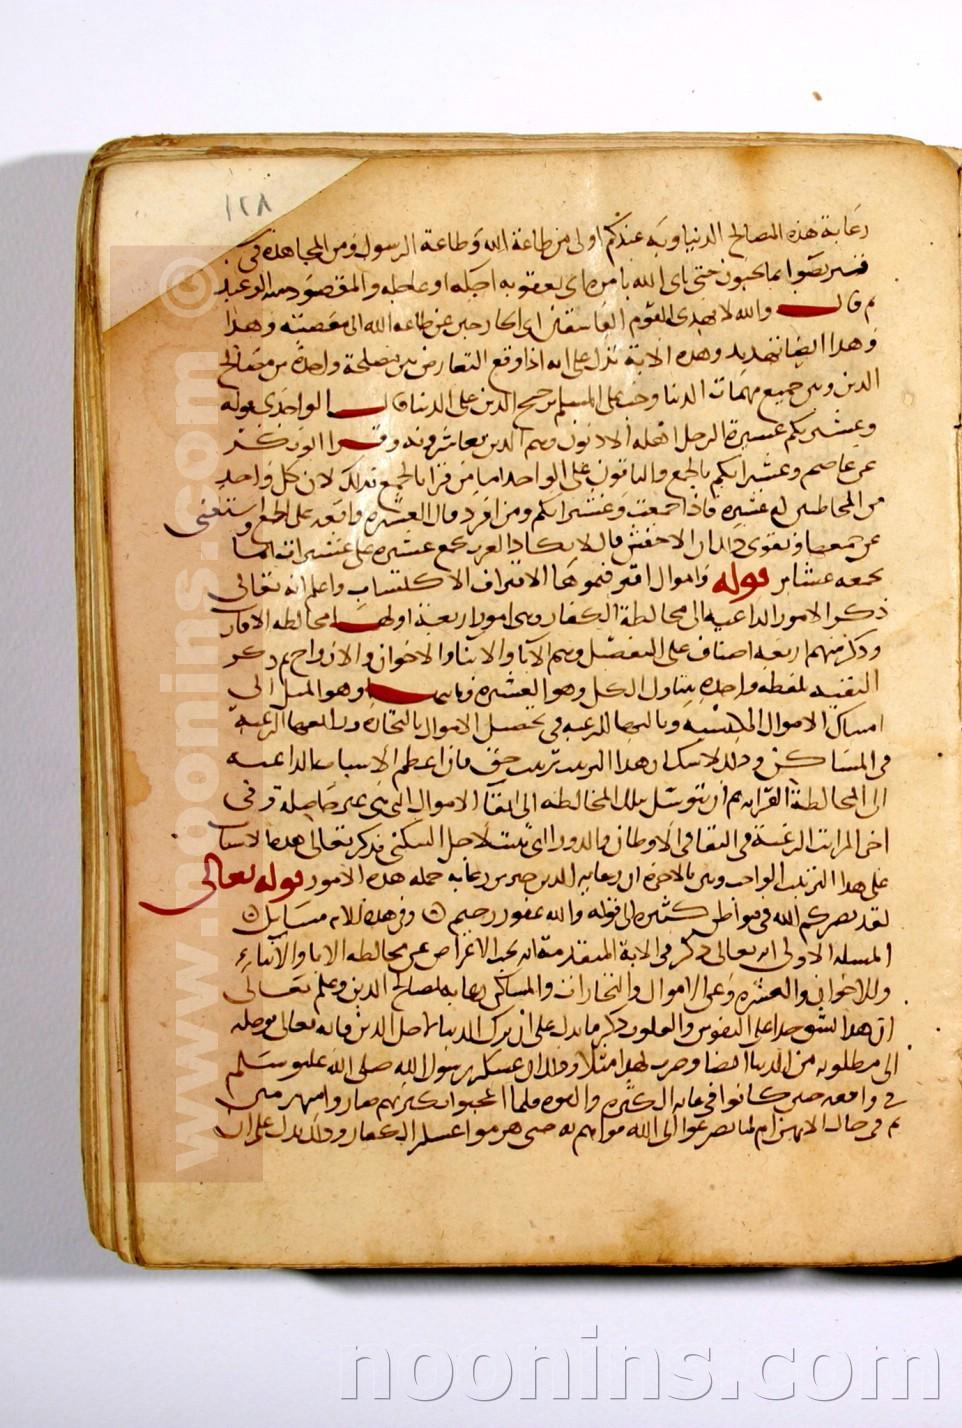 ١٢٨
رعاية هذه المصالح الدنياوية عندكم اولى من طاعة الله وطاعة الرسول ومن المجاهدة في
فتربصوا بما تحبون حتى ياتي الله بامره اي بعقوبه اجله او عاجله والمقصود منه الوعيد
ثم قال والله لا يهدي القوم الفاسقين اي الخارجين عن طاعه الله الى معصيته وهذا
وهذا ايضا تهديد وهذه الاية تدل على انه اذا وقع التعارض بين مصلحة واحدة من مصالح
الدين وبين جميع مهمات الدنيا وجب على المسلم ترجيح الدين على الدنيا قال الواحدي قوله
وعشيرتكم عشيرة الرجل اهله الادنون وهم الذين يعاشرونه وقرا ابو بكر
عن عاصم وعشيراتكم بالجمع والباقون على الواحد اما من قرا بالجمع فذلك لان كل واحد
من المخاطبين له عشيره فاذا جمعت وعشيراتكم ومن افرد قال العشيره واقعه على الجمع واستغنى
عن جمعها ويقوى ذلك ان الاخفش قال لا يكاد العرب تجمع عشيره على عشيرات انما
تجمعه عشاير قوله واموال اقترفتموها الاقتراف الاكتساب واعلم انه تعالى
ذكر الامور الداعيه الى مخالطة الكفار وهي امور اربعة اولها مخالطه الاقارب
وذكر منهم اربعه اصناف على التفصيل وهم الابا والابنا والاخوان والازواج ثم ذكر
البقيه بلفظه واحده يتناول الكل وهو العشيره وثانيها وهو الميل الى
امساك الاموال المكتسبه وثالثها الرغبه في تحصيل الاموال بالتجاره ورابعها الرغبة
في المساكن وذلك لا شك ان هذا الترتيب ترتيب حق فان اعظم الاسباب الداعيه
الى المخالطة القرابه ثم ان يتوسل بتلك المخالطه الى ابقا الاموال التي هي غير حاصلة وفي
اخر المراتب الرغبة في البقا في الاوطان والدور التي بنيت لاجل السكنى فذكر تعالى هذه الاشيا
على هذا الترتيب الواجب وبين بالاخره ان رعايه الدين خير من رعايه جمله هذه الامور قوله تعالى
لقد نصركم الله في مواطن كثيره الى قوله والله غفور رحيم وفي هذه الايه مسايل
المسله الاولى انه تعالى ذكر في الاية المتقدمة انه يجب الاعراض عن مخالطه الابا والابناء
وللاخوان والعشيره وعن الاموال والتجارات والمساكن رعايه لمصالح الدين وعلم تعالى
ان هذا يشق جدا على النفوس والقلوب ذكر ما يدل على ان من ترك الدنيا لاجل الدين فانه تعالى يوصله
الى مطلوبه من الدنيا ايضا وضرب لهذا مثلا وذلك ان عسكر رسول الله صلى الله عليه وسلم
في واقعه حنين كانوا في غايه الكثره والقوه فلما اعجبوا بكثرتهم صاروا منهزمين
ثم في حال الانهزام لما تضرعوا الى الله قواهم به حتى هزموا عسكر الكفار وذلك يدل على ان
www.noonins.com ©
noonins.com